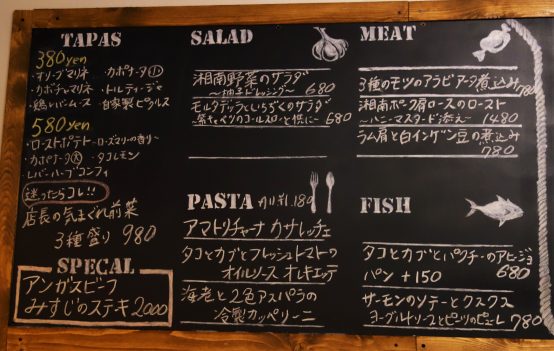 TAPAS
380yen
・オリーブマリネ ・カポナータ小
・カボチャマリネ ・トルティージャ
・鶏レバームース ・自家製ピクルス
580yen
・ローストポテト〜ローズマリーの香り〜
・カポナータ大 ・タコレモン
レバーハーブコンフィ
迷ったらコレ!!
店長の気まぐれ前菜
3種盛り 980
SPECAL
アンガスビーフ
みすじのステキ 2000
SALAD
湘南野菜のサラダ
〜柚子ドレッシング〜 680
モルタデッラといちぢくのサラダ
紫キャベツのコールスローと供に 680
PASTA 各¥1.180
アマトリチャーナ カサレッチェ
タコとカブとフレッシュトマトの
オイルソース オレキエッテ
海老と2色アスパラの
冷製カッペリーニ
MEAT
3種のモツのアラビアータ煮込み 780
湘南ポーク肩ロースのロースト
〜ハニーマスタード添え〜 1480
ラム肩と白インゲン豆の煮込み
780
FISH
タコとカブとパクチーのアヒージョ
パン +150 680
サーモンのソテーとクスクス
ヨーグルトソースとビーツのピューレ 780